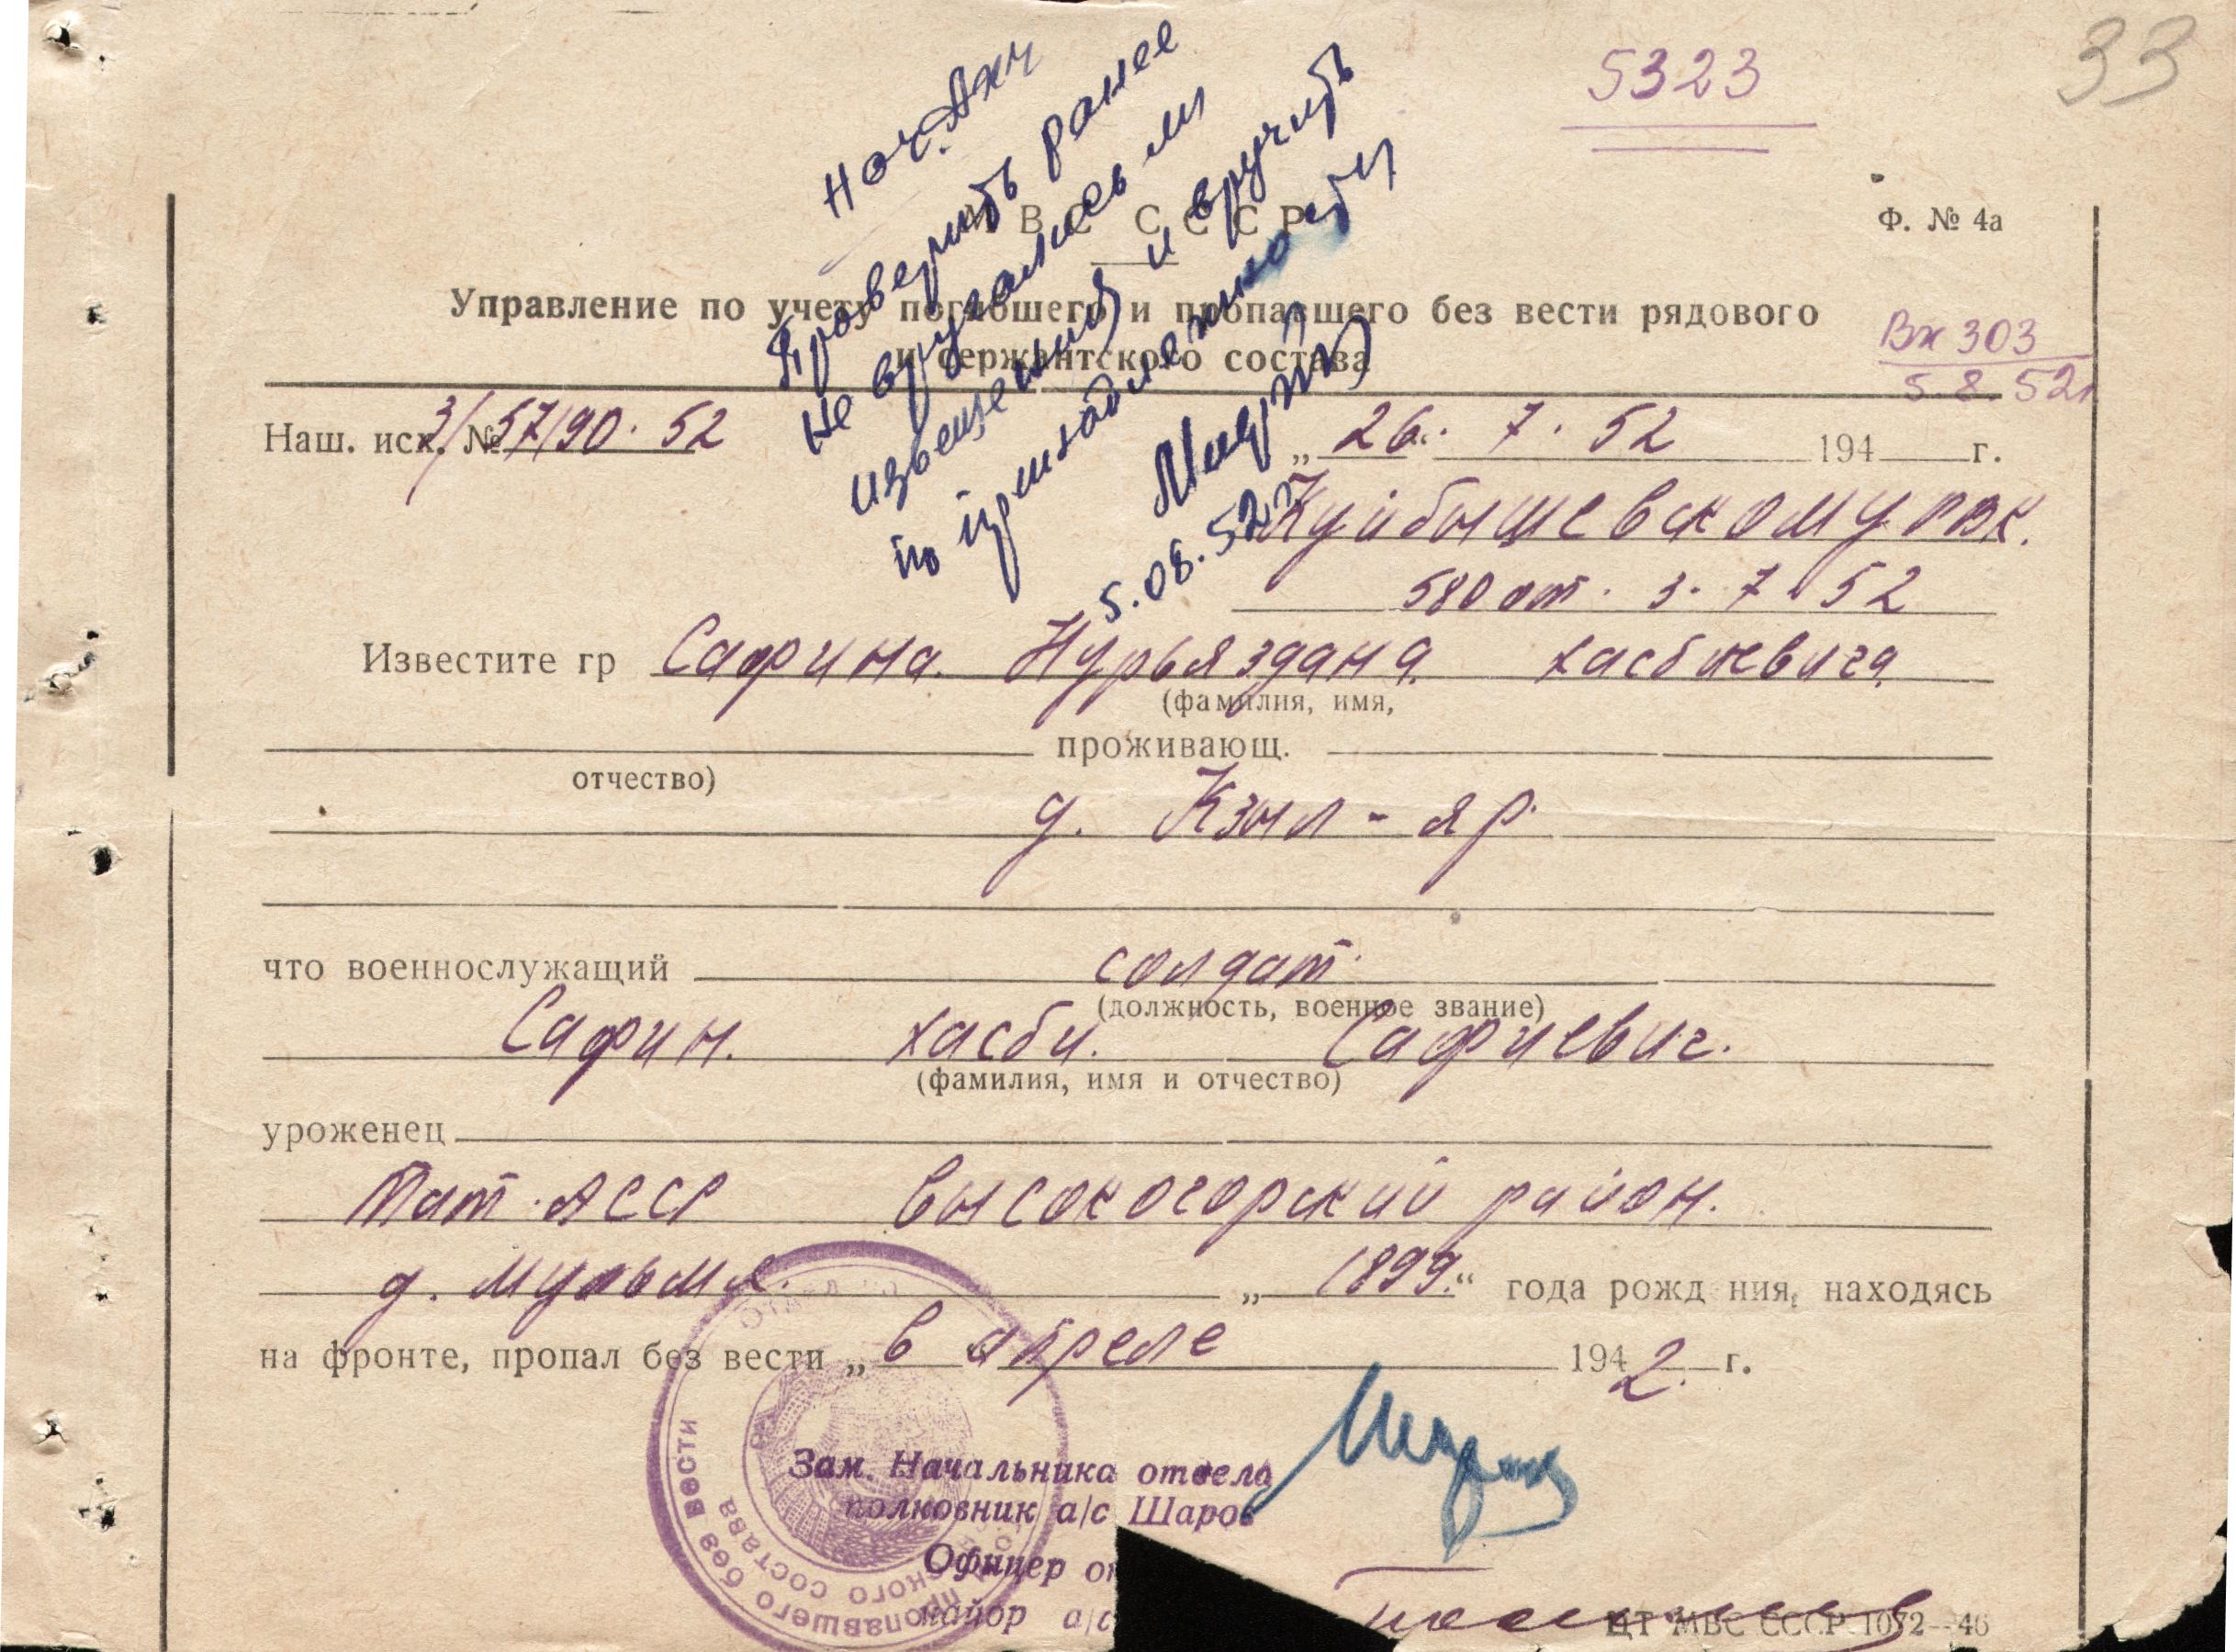 33
5323
Проверить ранее
не вручались ли
извещения и вручить
по принадлежности
5.08.52 г
М В С СССР
Ф. № 4а
Управление по учету погибшего и пропавшего без вести рядового
и сержантского состава
Вх 303
5.8.52г
Наш. исх. № 3/57190. 52
„ 26. 7. 52 194 г.
Куйбышевскому рвк.
580 от. 3. 7. 52
Известите гр Сафина. Нурьяздана. хасбиевича
(фамилия, имя,
проживающ.
отчество)
д. Кзыл-яр.
что военнослужащий солдат.
(должность, военное звание)
Сафин. хасби. Сафиевич.
(фамилия, имя и отчество)
уроженец
Тат.АССР Высокогорский район.
д. мульма. „1899.“ года рожд ния, находясь
на фронте, пропал без вести „в“ апреле 1942. г.
Зам. Начальника отдела
полковник а/с Шаров
Офицер от
майор а/с
пропавшего без вести
состава
ЦТ МВС СССР 1072—46